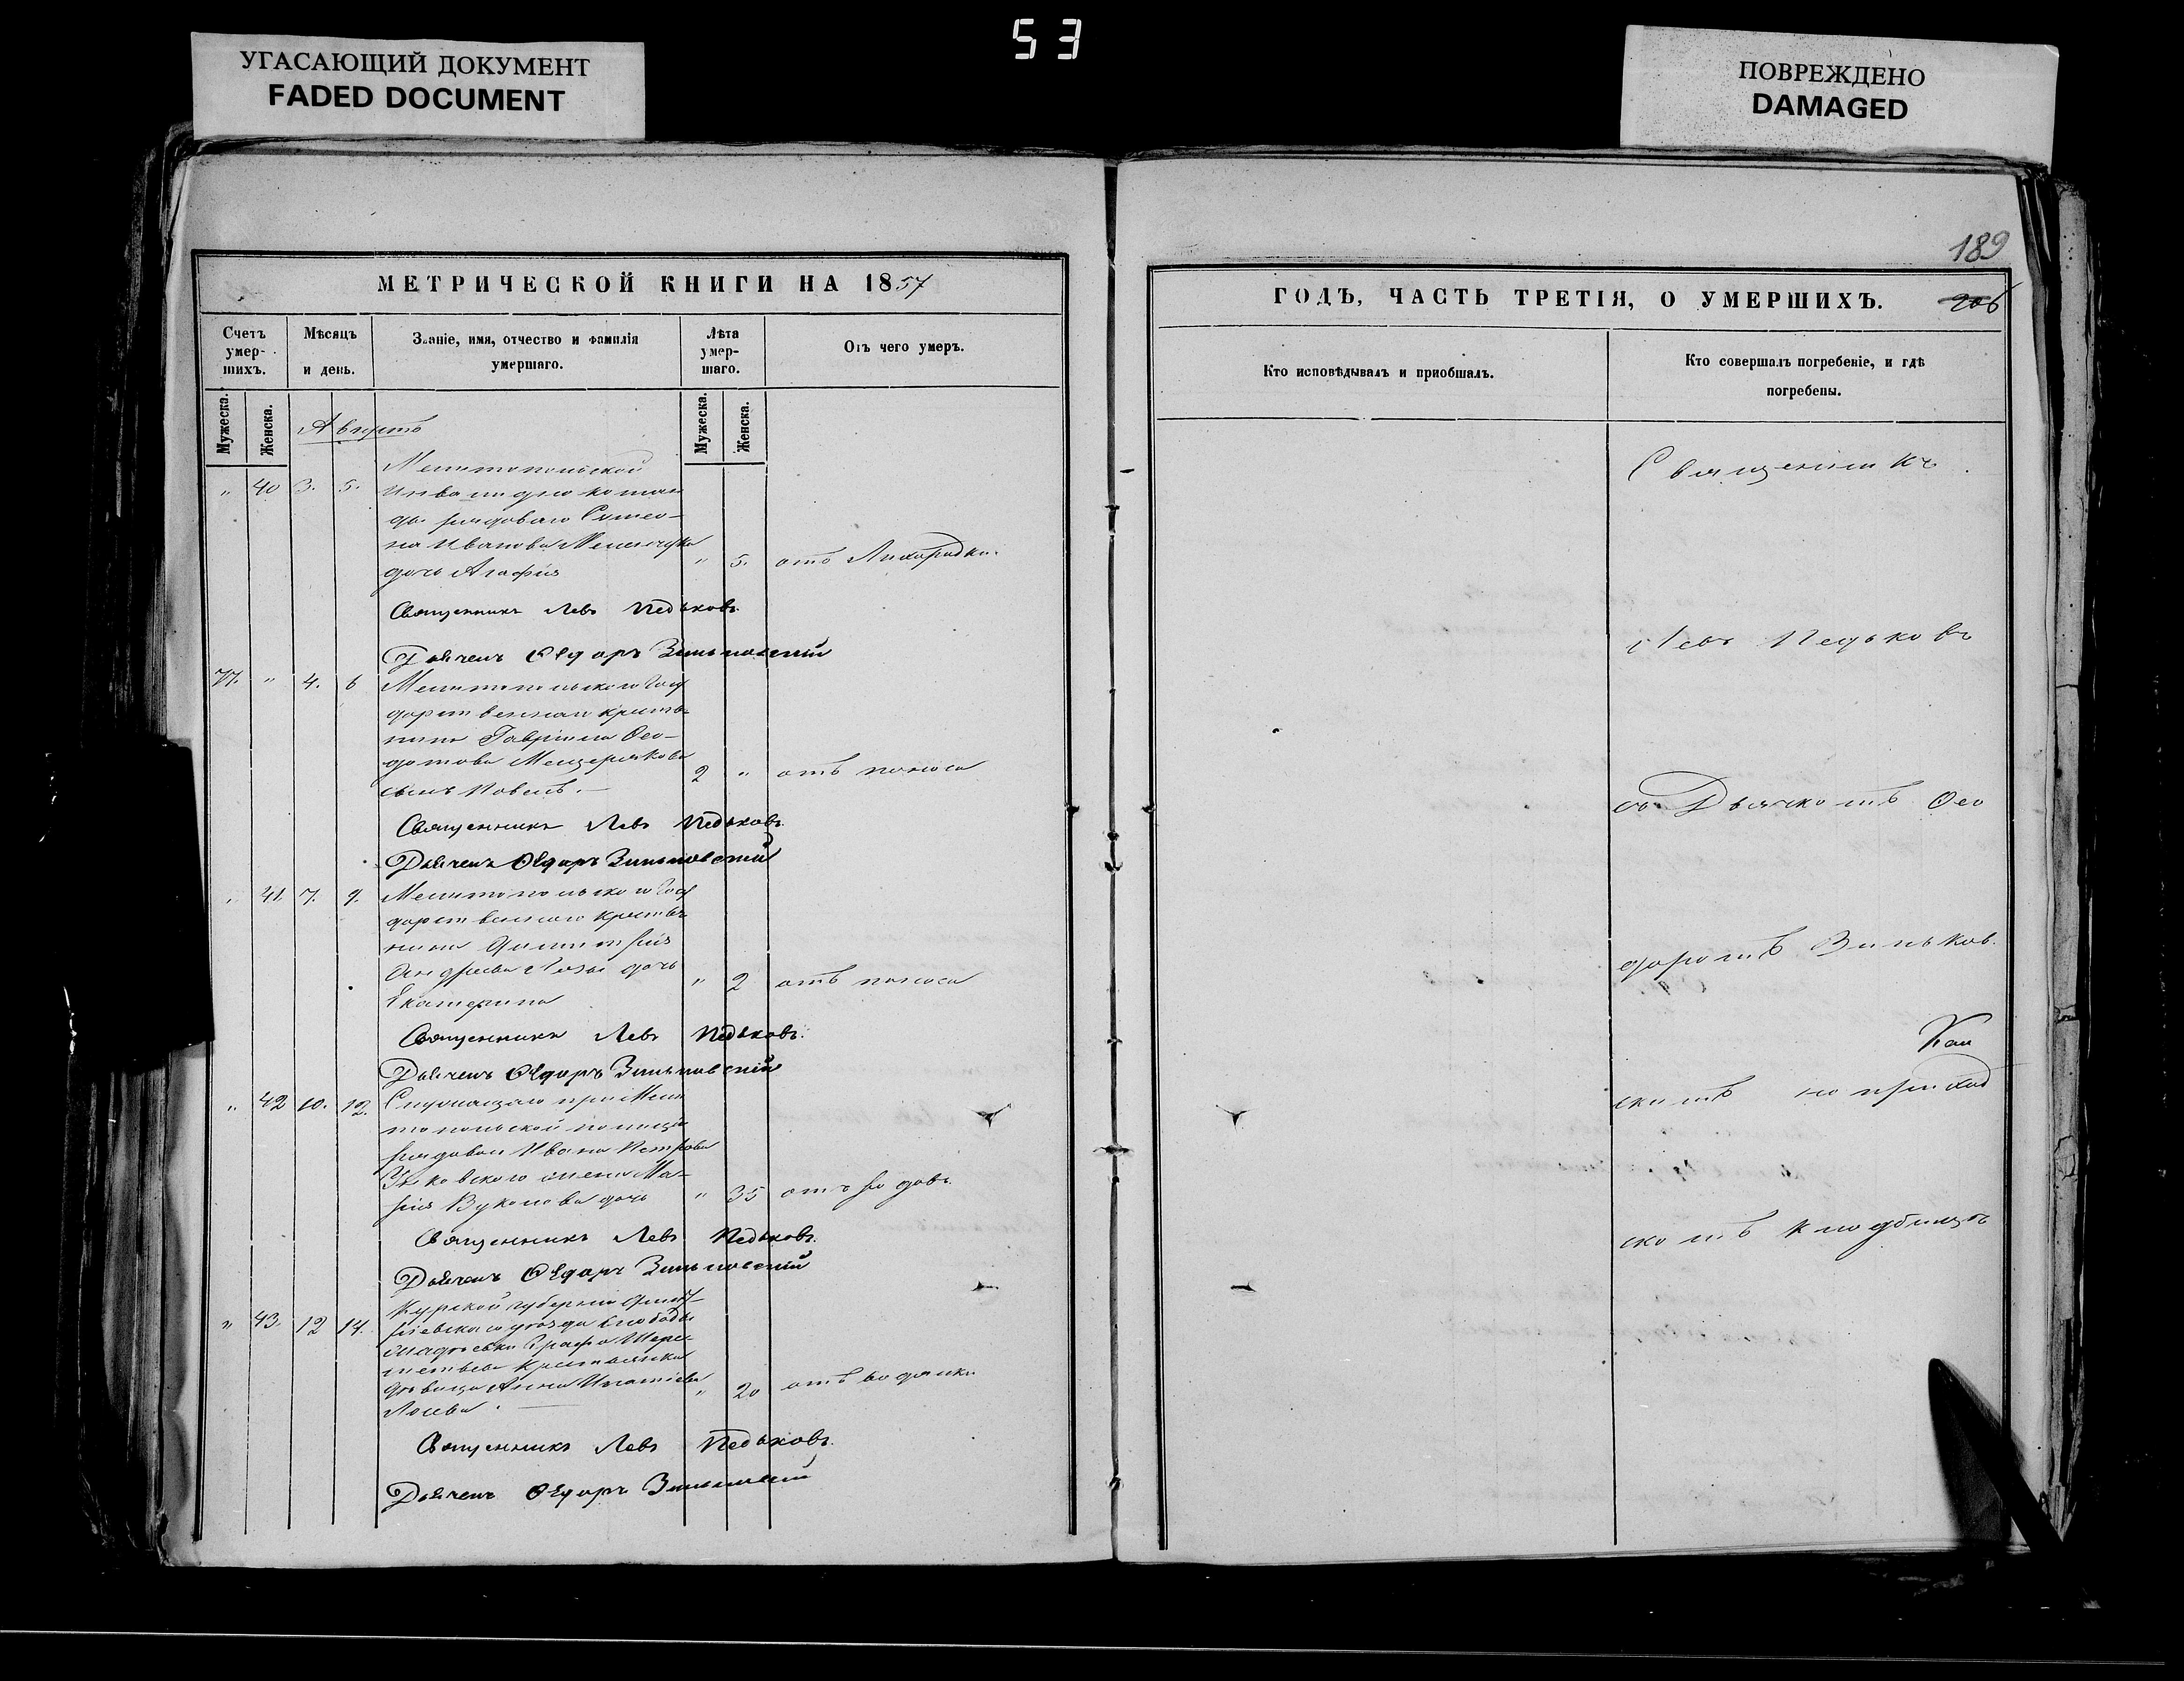 53
УГАСАЮЩИЙ ДОКУМЕНТ
FADED DOCUMENT
ПОВРЕЖДЕНО
DAMAGED
МЕТРИЧЕСКОЙ КНИГИ НА 1857
Счетъ умерших.
Мѣсяцъ и день.
Званіе, имя, отчество и фамилія
умершаго.
Лѣта умершаго.
Отъ чего умеръ.
Мужеска.
Женска.
Мужеска.
Женска.
Августъ
" 40 3. 5.
Мелитопольской
инвалидно коман
ды рядоваго Симео-
на Иванова
дочь Агафія " 5. отъ Лихорадки.
Священникъ Левъ Педьковъ.
Дьячекъ Ѳедоръ Зиньковскій
77. " 4. 6
Мелитопольскаго Госу
дарственнаго крестья
нина Гавріила Ѳео-
дотова Мещерякова
сынъ Павелъ. — 2 " отъ поноса
Священникъ Левъ Педьковъ.
Дьячекъ Ѳедоръ Зиньковскій
" 41. 7. 9.
Мелитопольскаго Госу
дарственнаго крестья
нина Димитрія
Андреева дочь
Екатерина " 2 отъ поноса
Священникъ Левъ Педьковъ.
Дьячекъ Ѳедоръ Зиньковскій
" 42 10. 12.
Служащаго при Мели
топольской полиціи
рядоваго Ивана Петрова
жена Ма-
рія Вуколова дочь " 35 отъ родовъ.
Священникъ Левъ Педьковъ.
Дьячекъ Ѳедоръ Зиньковскій
" 43. 12 14.
Курской губерніи Дмит
ріевскаго уѣзда слободы
Графа Шере-
метьева крестьянка
дѣвица Анна Игнатіева " 20 отъ водянки
Священникъ Левъ Педьковъ.
Дьячекъ Ѳедоръ Зиньковскій
189
ГОДЪ, ЧАСТЬ ТРЕТІЯ, О УМЕРШИХЪ.
206
Кто исповѣдывалъ и пріобщалъ.
Кто совершалъ погребеніе, и гдѣ
погребены.
Священникъ
Левъ Педьковъ
съ Дьячкомъ Ѳео
доромъ Зиньков.
скимъ на приход
скомъ кладбищѣ